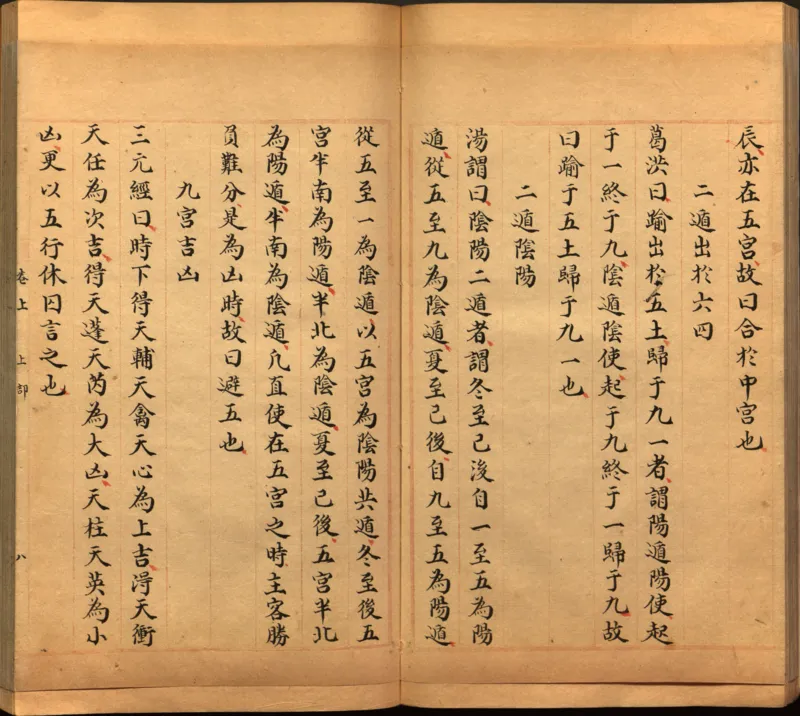 辰亦在五宮故曰合於中宮也
二遁出於六四
葛洪曰踰出於五土歸于九一者謂陽遁陽使起
于一終于九陰遁陰使起于九終于一歸于九故
曰踰于五土歸于九一也
二遁陰陽
湯謂曰陰陽二遁者謂冬至已後自一至五為陽
遁從五至九為陰遁夏至已後自九至五為陽遁
從五至一為陰遁以五宮為陰陽共遁冬至後五
宮半南為陽遁半北為陰遁夏至已後五宮半北
為陽遁半南為陰遁凢直使在五宮之時主客勝
負難分是為凶時故曰避五也
九宮吉凶
三元經曰時下得天輔天禽天心為上吉淂天衝
天任為次吉得天蓬天芮為大凶天柱天英為小
凶更以五行休囚言之也
卷上 上部 八